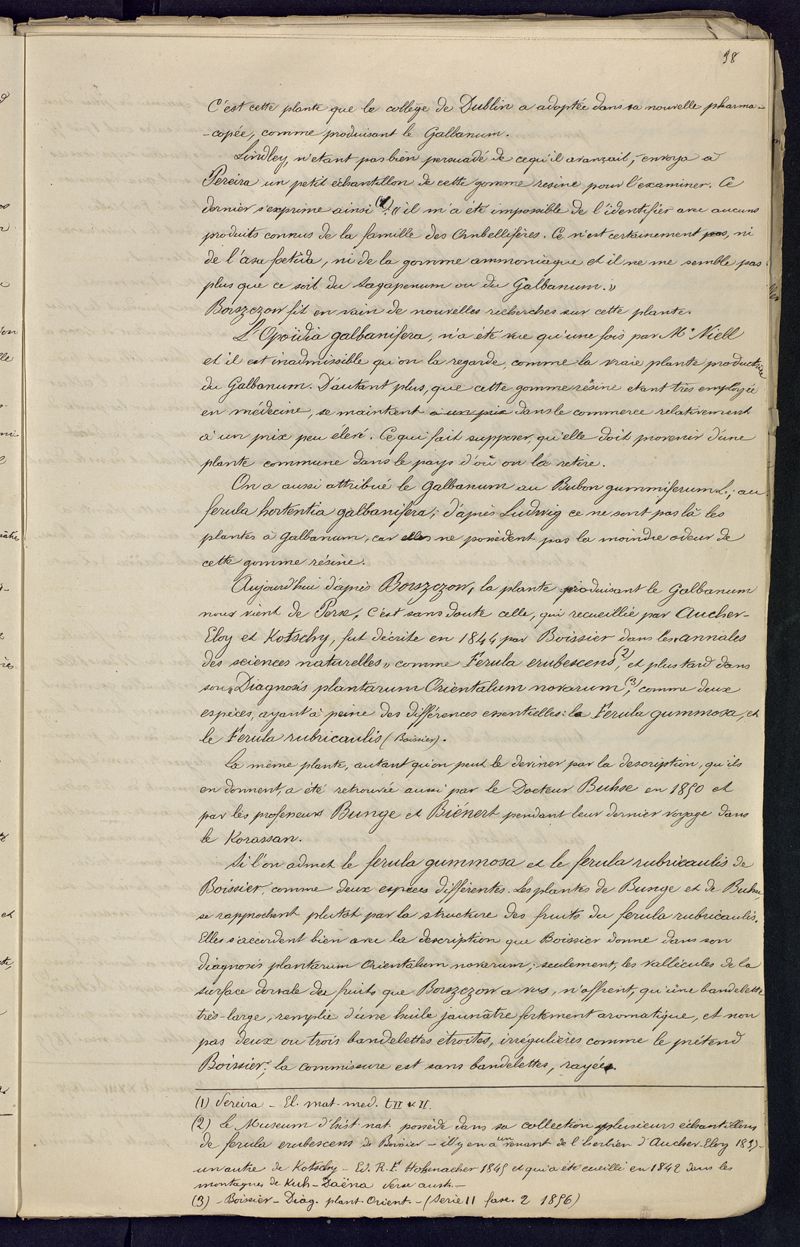 98
C'est cette plante que le collège de Dublin a adoptée dans sa nouvelle pharma-
-copée, comme produisant le Galbanum.
Lindley, n'étant pas bien persuadé de ce qu'il avançait, envoya à
Pereira un petit échantillon de cette gomme résine pour l'examiner. Ce
dernier s'exprime ainsi (1): "il m'a été impossible de l'identifier avec aucuns
produits connus de la famille des Ombellifères. Ce n'est certainement pas, ni
de l'asa foetida, ni de la gomme ammoniaque et il ne me semble pas
plus que ce soit du sagapenum ou du Galbanum."
Borszczow fit en vain de nouvelles recherches sur cette plante.
L'Opoïdia galbanifera, n'a été vue qu'une fois par Mr Niell
et il est inadmissible qu'on la regarde, comme la vraie plante productrice
du Galbanum. D'autant plus, que cette gomme résine étant très employée
en médecine, se maintient a un prix dans le commerce relativement
à un prix peu élevé. Ce qui fait supposer, qu'elle doit provenir d'une
plante commune dans le pays d'où on la retire.
On a aussi attribué le Galbanum au Bubon gummiferum L., au
ferula hortentia galbanifera; d'après Ludwig ce ne sont pas là les
plantes à Galbanum, car elles ne possèdent pas la moindre odeur de
cette gomme résine.
Aujourd'hui d'après Borszczow, la plante produisant le Galbanum
nous vient de Perse, c'est sans doute celle, qui recueillie par Aucher-
Eloy et Kotschy, fut décrite en 1844 par Boissier dans les "annales
des sciences naturelles" comme Ferula erubescens (2), et plus tard dans
son "Diagnosis plantarum Orientalum novarum (3)", comme deux
espèces, ayant à peine des différences essentielles: le Ferula gummosa, et
le Ferula rubricaulis (Boissier).
La même plante, autant qu'on peut le deviner par la description, qu'ils
en donnent, a été retrouvée aussi par le Docteur Buhse en 1850 et
par les professeurs Bunge et Biénert pendant leur dernier voyage dans
le Korassan.
Si l'on admet le ferula gummosa et le ferula rubricaulis de
Boissier, comme deux espèces différentes. Les plantes de Bunge et de Buhse,
se rapprochent plutôt par la structure des fruits du ferula rubricaulis.
Elles s'accordent bien avec la description que Boissier donne dans son
diagnosis plantarum Orientalum novarum; seulement, les vallécules de la
surface dorsale des fruits que Borszczow a vus, n'offrent, qu'une bandelette
très-large, remplie d'une huile jaunâtre fortement aromatique, et non
pas deux ou trois bandelettes étroites, irrégulières comme le prétend
Boissier, la commissure est sans bandelettes, rayée.
(1) Pereira - El. mat. med. t II
(2) Le Museum d'hist. nat. possède dans sa collection plusieurs échantillons
de ferula erubescens de Boissier - il y en a un venant de l'herbier d'Aucher-Eloy
un autre de Kotschy - Ed. R. F. Hohenacher 1845 et qui a été cueilli en 1842 dans les
montagnes de Kuh-Daëna Perse aust. -
(3) - Boissier - Diag. plant. Orient. - (Serie II fasc. 2 1856)